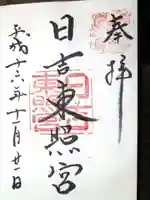 奉拝
日吉東照宮
平成十六年十一月廿一日